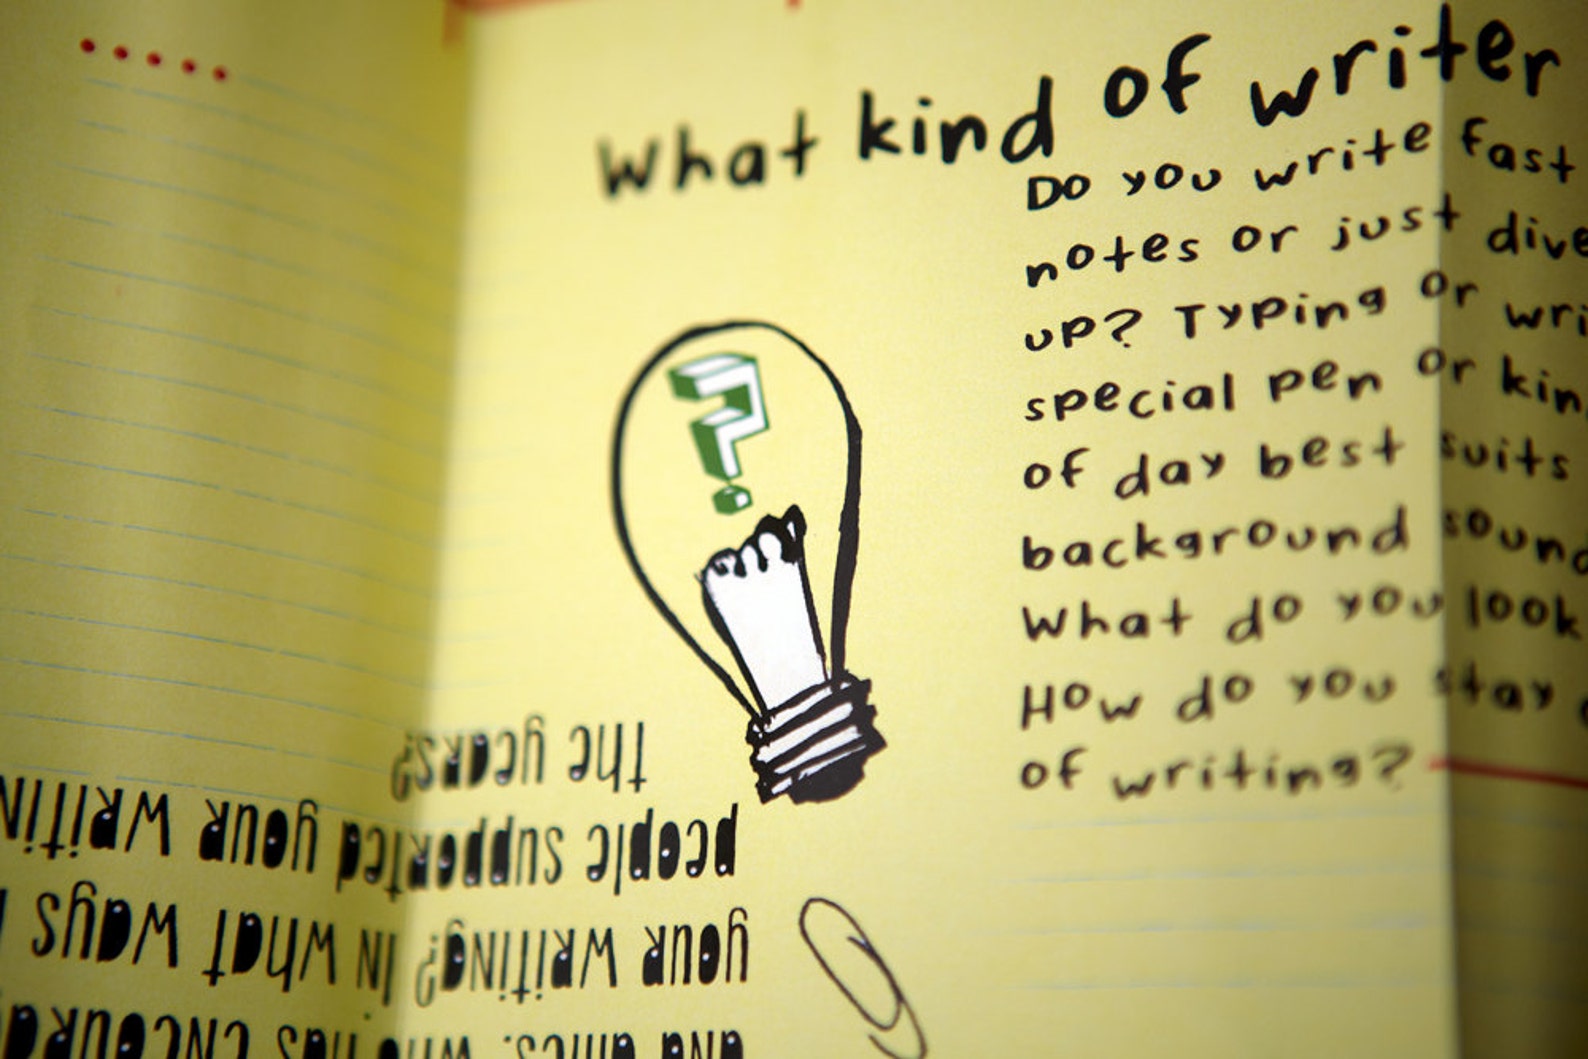 What kind of writer
Do you write fast
notes or just dive
up? Typing or wri
special pen or kin
of day best suits
background soun
What do you look
How do you stay
of writing?
and Who has encoura
your writing? In what ways
people supported your writin
the years?
?